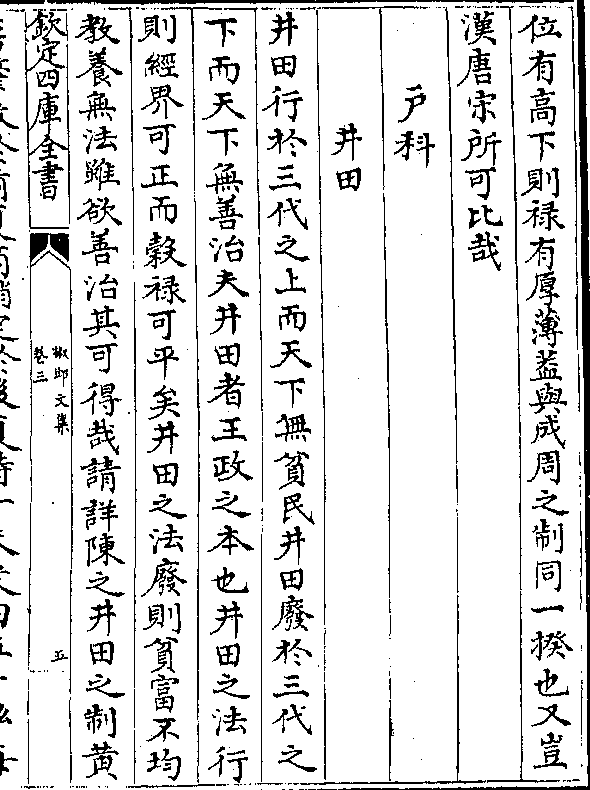 位有高下則禄有厚薄葢與成周之制同一揆也又豈
漢唐宋所可比哉
戸科
井田
井田行於三代之上而天下無貧民井田廢於三代之
下而天下無善治夫井田者王政之本也井田之法行
則經界可正而榖禄可平矣井田之法廢則貧富不均
教養無法雖欲善治其可得哉請詳陳之井田之制黄
欽定四庫全書
椒邱文集
卷三
五